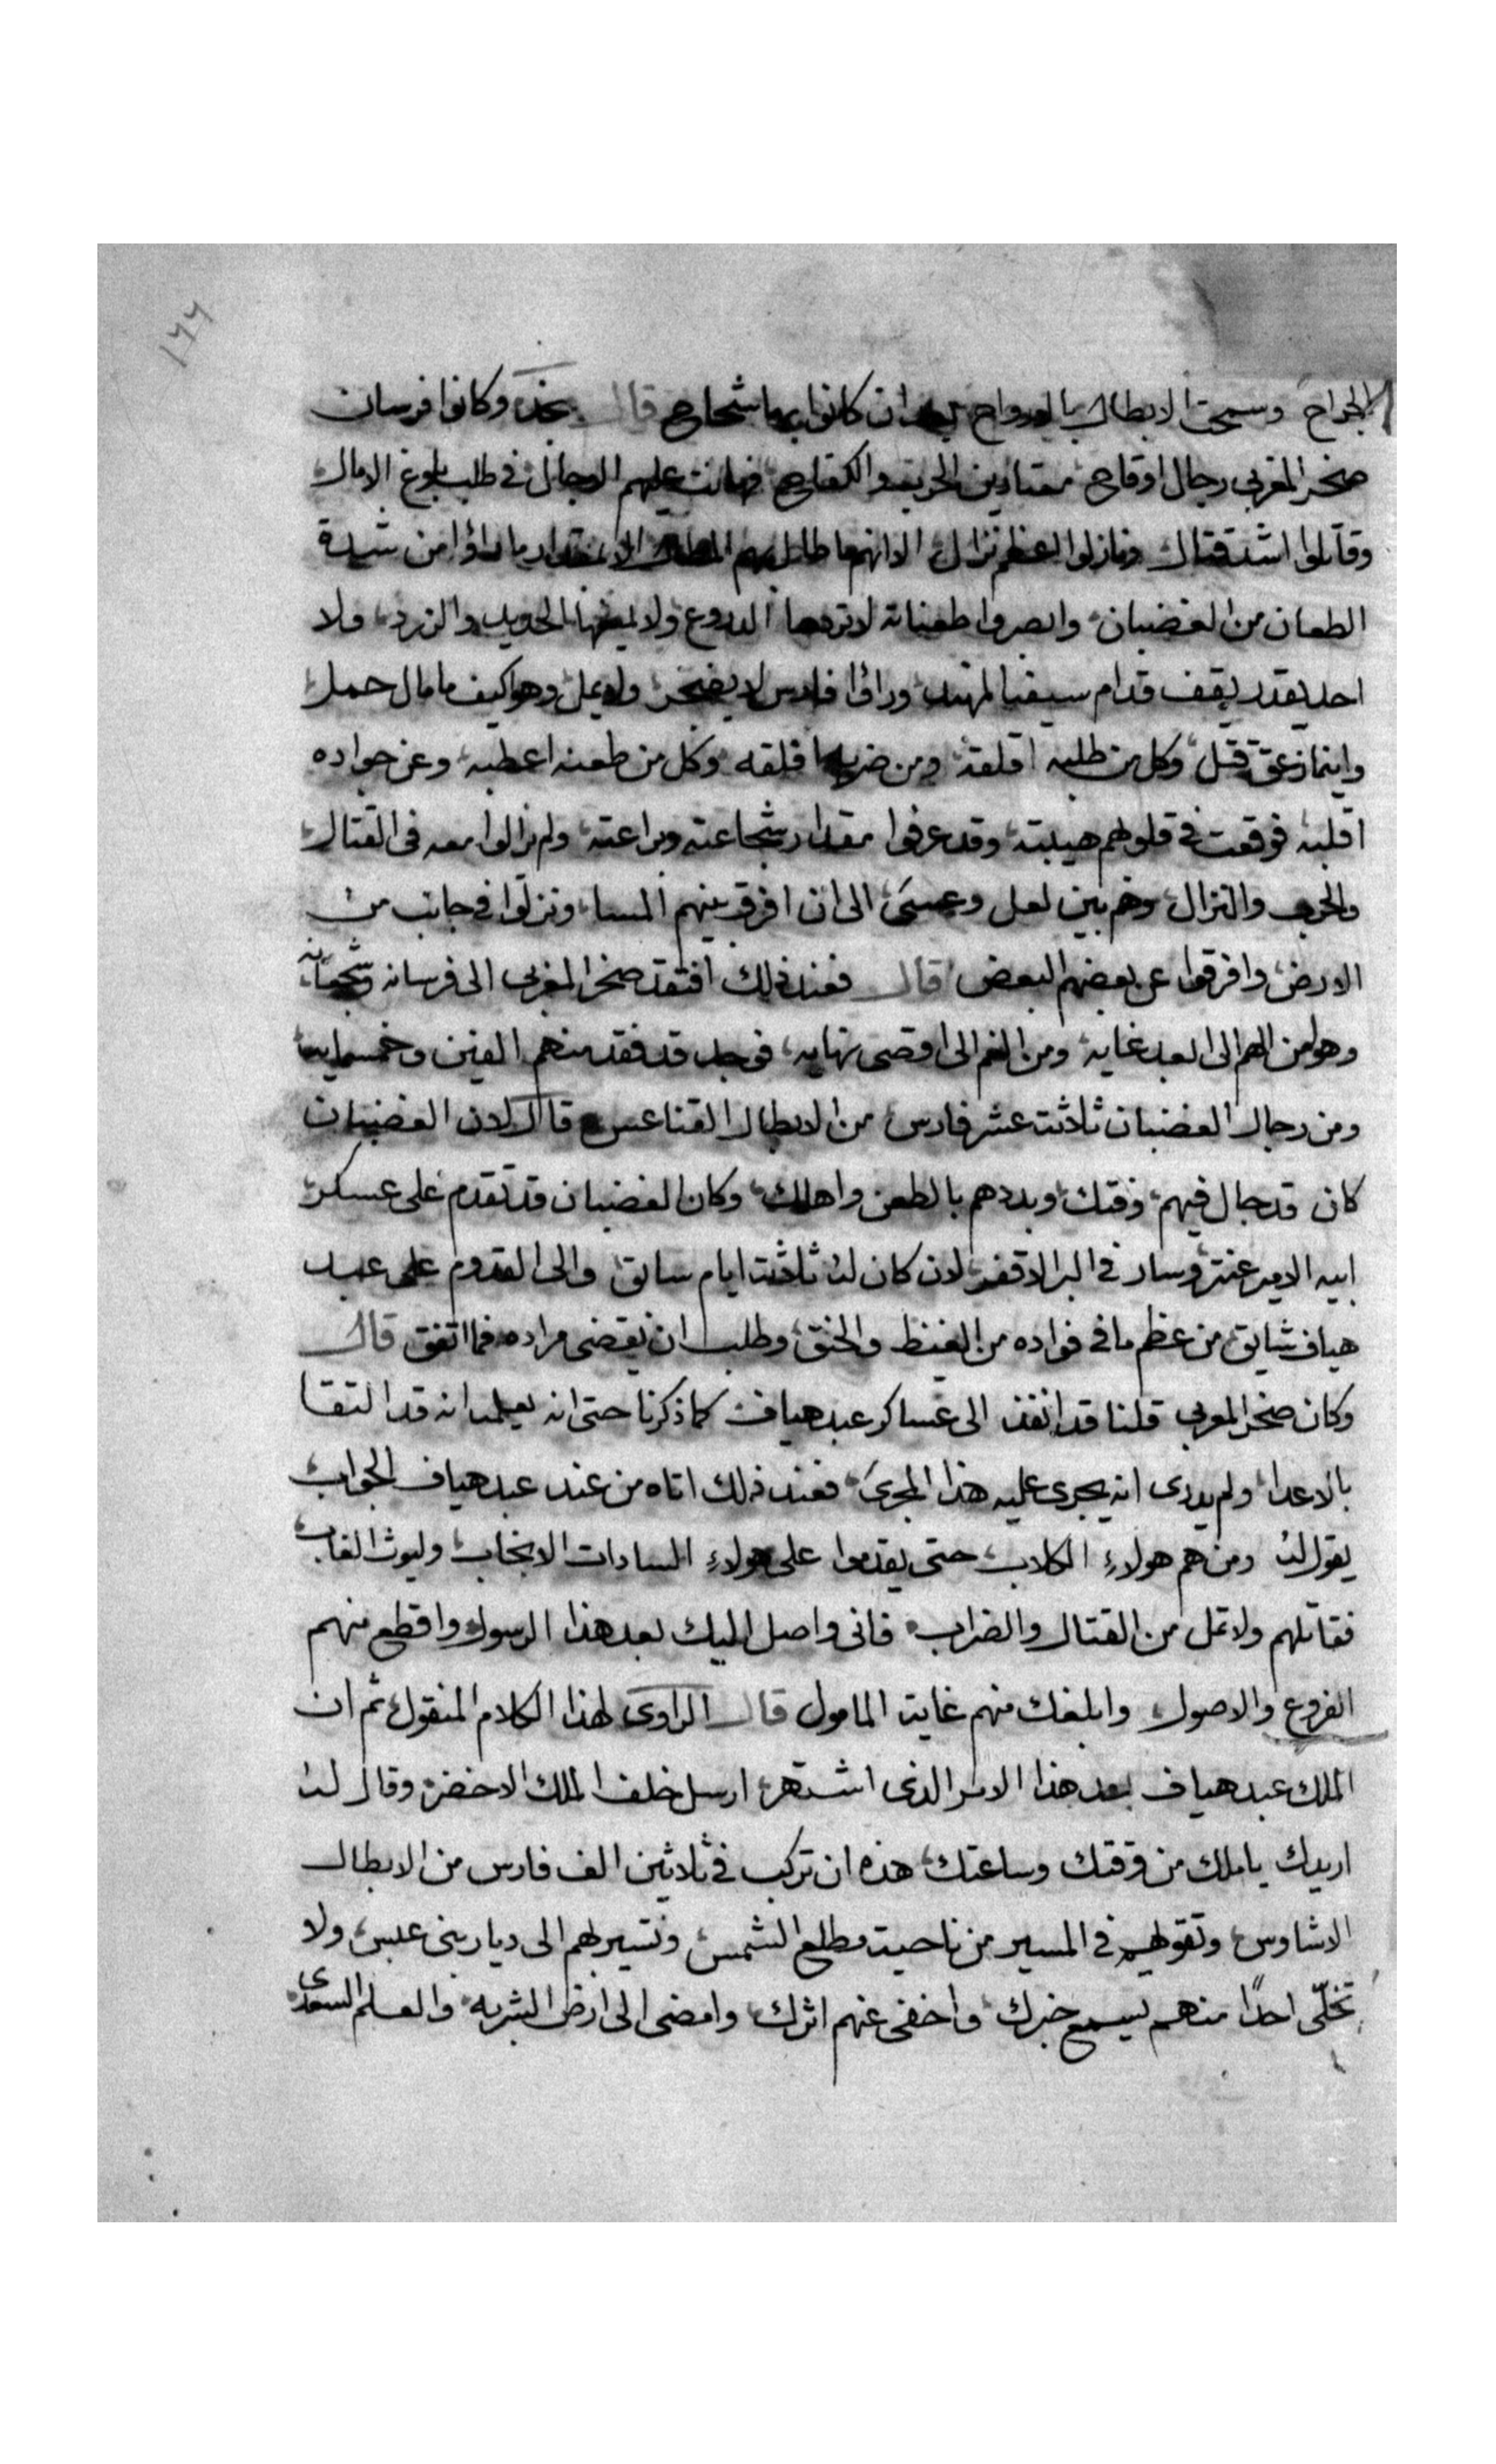 ١٦٦
الجراح وسمحت الابطال بالارواح بعد ان كانوا بها شحاح قال نجد وكانوا فرسان
صخر المغربي رجال اوقاح معتادين الحرب والكفاح فهانت عليهم الاوجال في طلب بلوغ الامال
وقاتلوا اشد قتال ونازلوا اعظم نزال الا انهم ما طال بهم المطال الا بمقدار ما راؤا من شدة
الطعان من الغضبان وابصروا طعناته لا تردها الدروع ولا يمنعها الحديد والزرد ولا
احد يقدر يقف قدام سيفه المهند وراؤا فارس لا يضجر ولا يمل وهو كيف ما مال حمل
واينما زعق قتل وكل من طلبه اقلقه ومن ضربه فلقه وكل من طعنه اعطبه وعن جواده
اقلبه فوقعت في قلوبهم هيبته وقد عرفوا مقدار شجاعته وبراعته ولم يزالوا معه في القتال
والحرب والنزال وهم بين لعل وعسى الى ان افرق بينهم المسا ونزلوا في جانب من
الارض وافرقوا عن بعضهم البعض قال فعند ذلك افتقد صخر المغربي الى فرسانه وشجعانه
وهو من الهم الى ابعد غايه ومن الغم الى اقصى نهايه فوجد قد فقد منهم الفين وخمسمايه
ومن رجال الغضبان ثلاثة عشر فارس من الابطال القناعس قال لان الغضبان
كان قد جال فيهم وفتك وبددهم بالطعن واهلك وكان الغضبان قد تقدم على عسكر
ابيه الامير عنتر وسار في البر الاقفر لان كان له ثلاثة ايام سابق والى القدوم على عبد
هياف شايق من عظم ما في فواده من الغيظ والحنق وطلب ان يقضى مراده فما اتفق قال
وكان صخر المغربي قلنا قد انفذ الى عساكر عبد هياف كما ذكرنا حتى انه يعلمه انه قد التقا
بالاعدا ولم يدرى انه يجرى عليه هذا المجرى فعند ذلك اتاه من عند عبد هياف الجواب
يقول له ومن هم هولاء الكلاب حتى يقدموا على هولاء السادات الانجاب وليوث الغاب
فقاتلهم ولا تمل من القتال والضراب فانى واصل اليك بعد هذا الرسول واقطع منهم
الفروع والاصول وابلغك منهم غاية المامول قال الراوى لهذا الكلام المنقول ثم ان
الملك عبد هياف بعد هذا الامر الذى اشتهر ارسل خلف الملك الاخضر وقال له
اريدك يا ملك من وقتك وساعتك هذه ان تركب في ثلاثين الف فارس من الابطال
الاشاوس وتقولهم في المسير من ناحية مطلع الشمس وتسير بهم الى ديار بنى عبس ولا
تخلّى احدًا منهم يسمع خبرك واخفى عنهم اثرك وامضى الى ارض الشربه والعلم السعدى